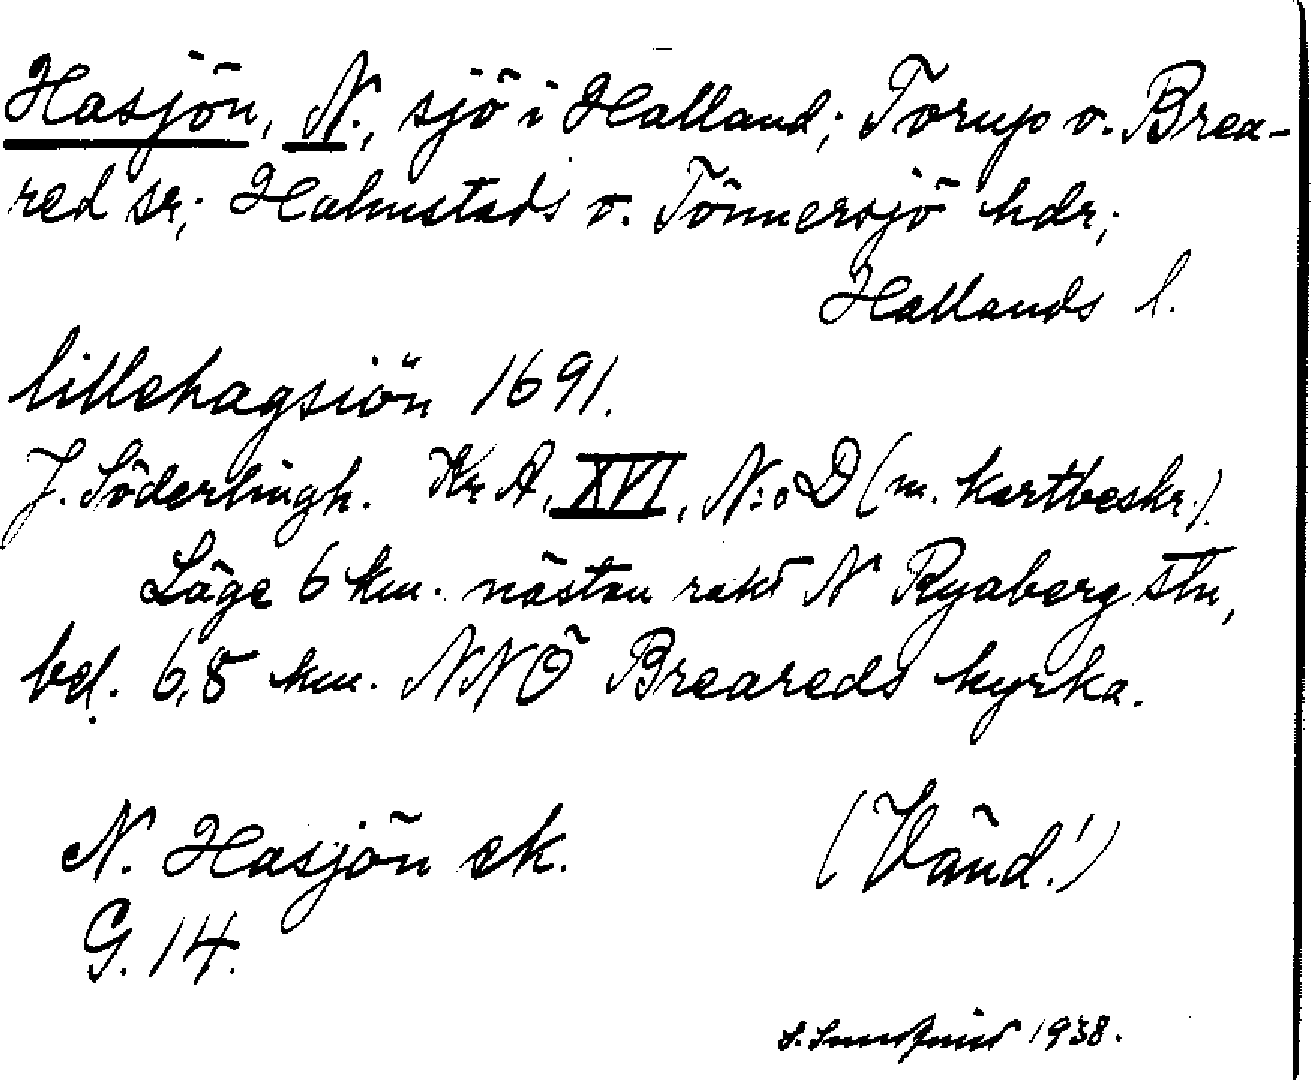 Hasjön, N., sjö i Halland; Torup o. Brea-
red sr; Halmstads o. Tönnersjö hdr;
Hallands l.
lillehagsiön 1691.
J. Söderlingh. Kr A, XVI, N:o D (m. kartbeskr.)
Läge 6 km. nästan rakt N Ryaberg stn,
bel. 6,8 km. NNÖ Breareds kyrka.
N. Hasjön ek.
(Vänd!)
G. 14.
1938.